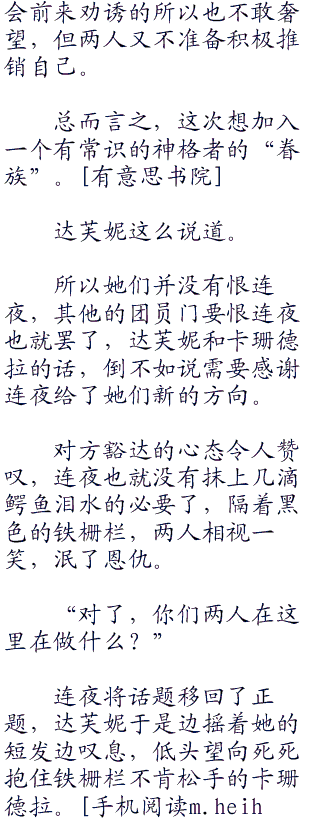 会前来劝诱的所以也不敢奢
望，但两人又不准备积极推
销自己。
总而言之，这次想加入
一个有常识的神格者的“眷
族”。[有意思书院]
达芙妮这么说道。
所以她们并没有恨连
夜，其他的团员门要恨连夜
也就罢了，达芙妮和卡珊德
拉的话，倒不如说需要感谢
连夜给了她们新的方向。
对方豁达的心态令人赞
叹，连夜也就没有抹上几滴
鳄鱼泪水的必要了，隔着黑
色的铁栅栏，两人相视一
笑，泯了恩仇。
“对了，你们两人在这
里在做什么？”
连夜将话题移回了正
题，达芙妮于是边摇着她的
短发边叹息，低头望向死死
抱住铁栅栏不肯松手的卡珊
德拉。[手机阅读m.heih